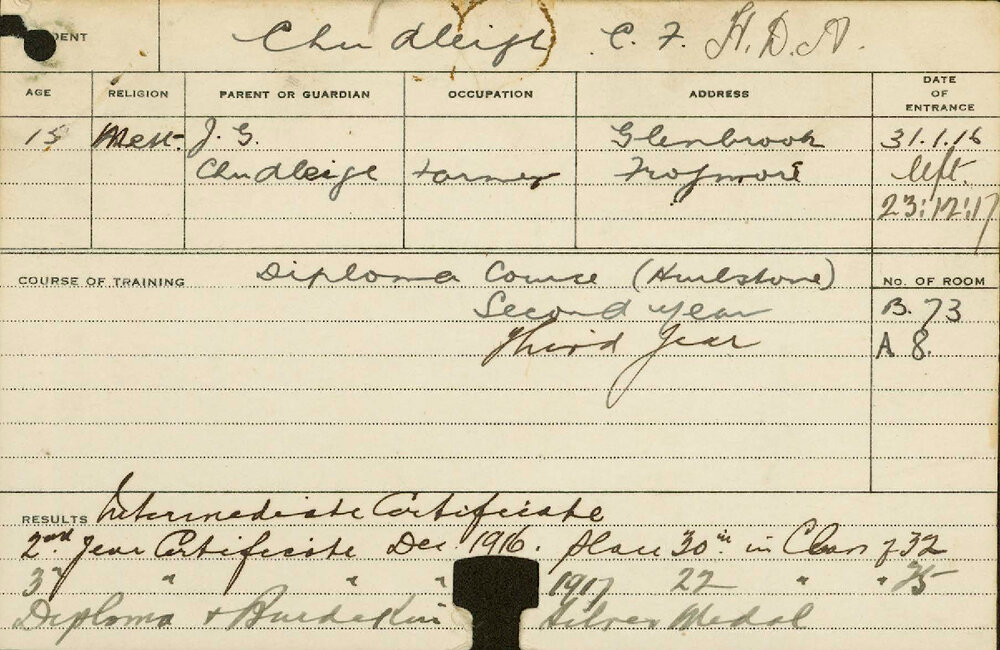 DENT Chudleigh C. F. H.D.A.
AGE RELIGION PARENT OR GUARDIAN OCCUPATION ADDRESS DATE OF ENTRANCE
15 Meth. J. G. Glenbrook 31.1.16
Chudleigh Farmer Frogmore left
23:12:17
COURSE OF TRAINING Diploma Course (Hurlstone) No. OF ROOM
Second year B. 73
Third Year A 8.
RESULTS Intermediate Certificate
2nd Year Certificate Dec. 1916. place 30th in Class of 32
3rd " " " 1917 22 " " 25
Diploma & Burdekin Silver Medal